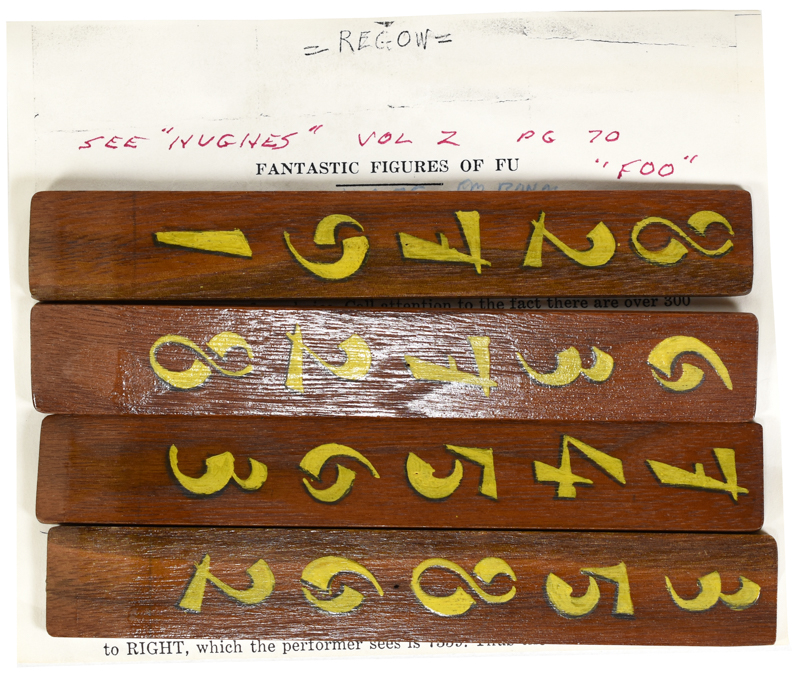 = REGOW =
SEE "HUGHES" VOL 2 PG 70
FANTASTIC FIGURES OF FU
"FOO"
1 9 7 2 8
Call attention to the fact there are over 300
8 2 7 3 6
3 6 5 4 7
2 6 8 5 3
to RIGHT, which the performer sees is